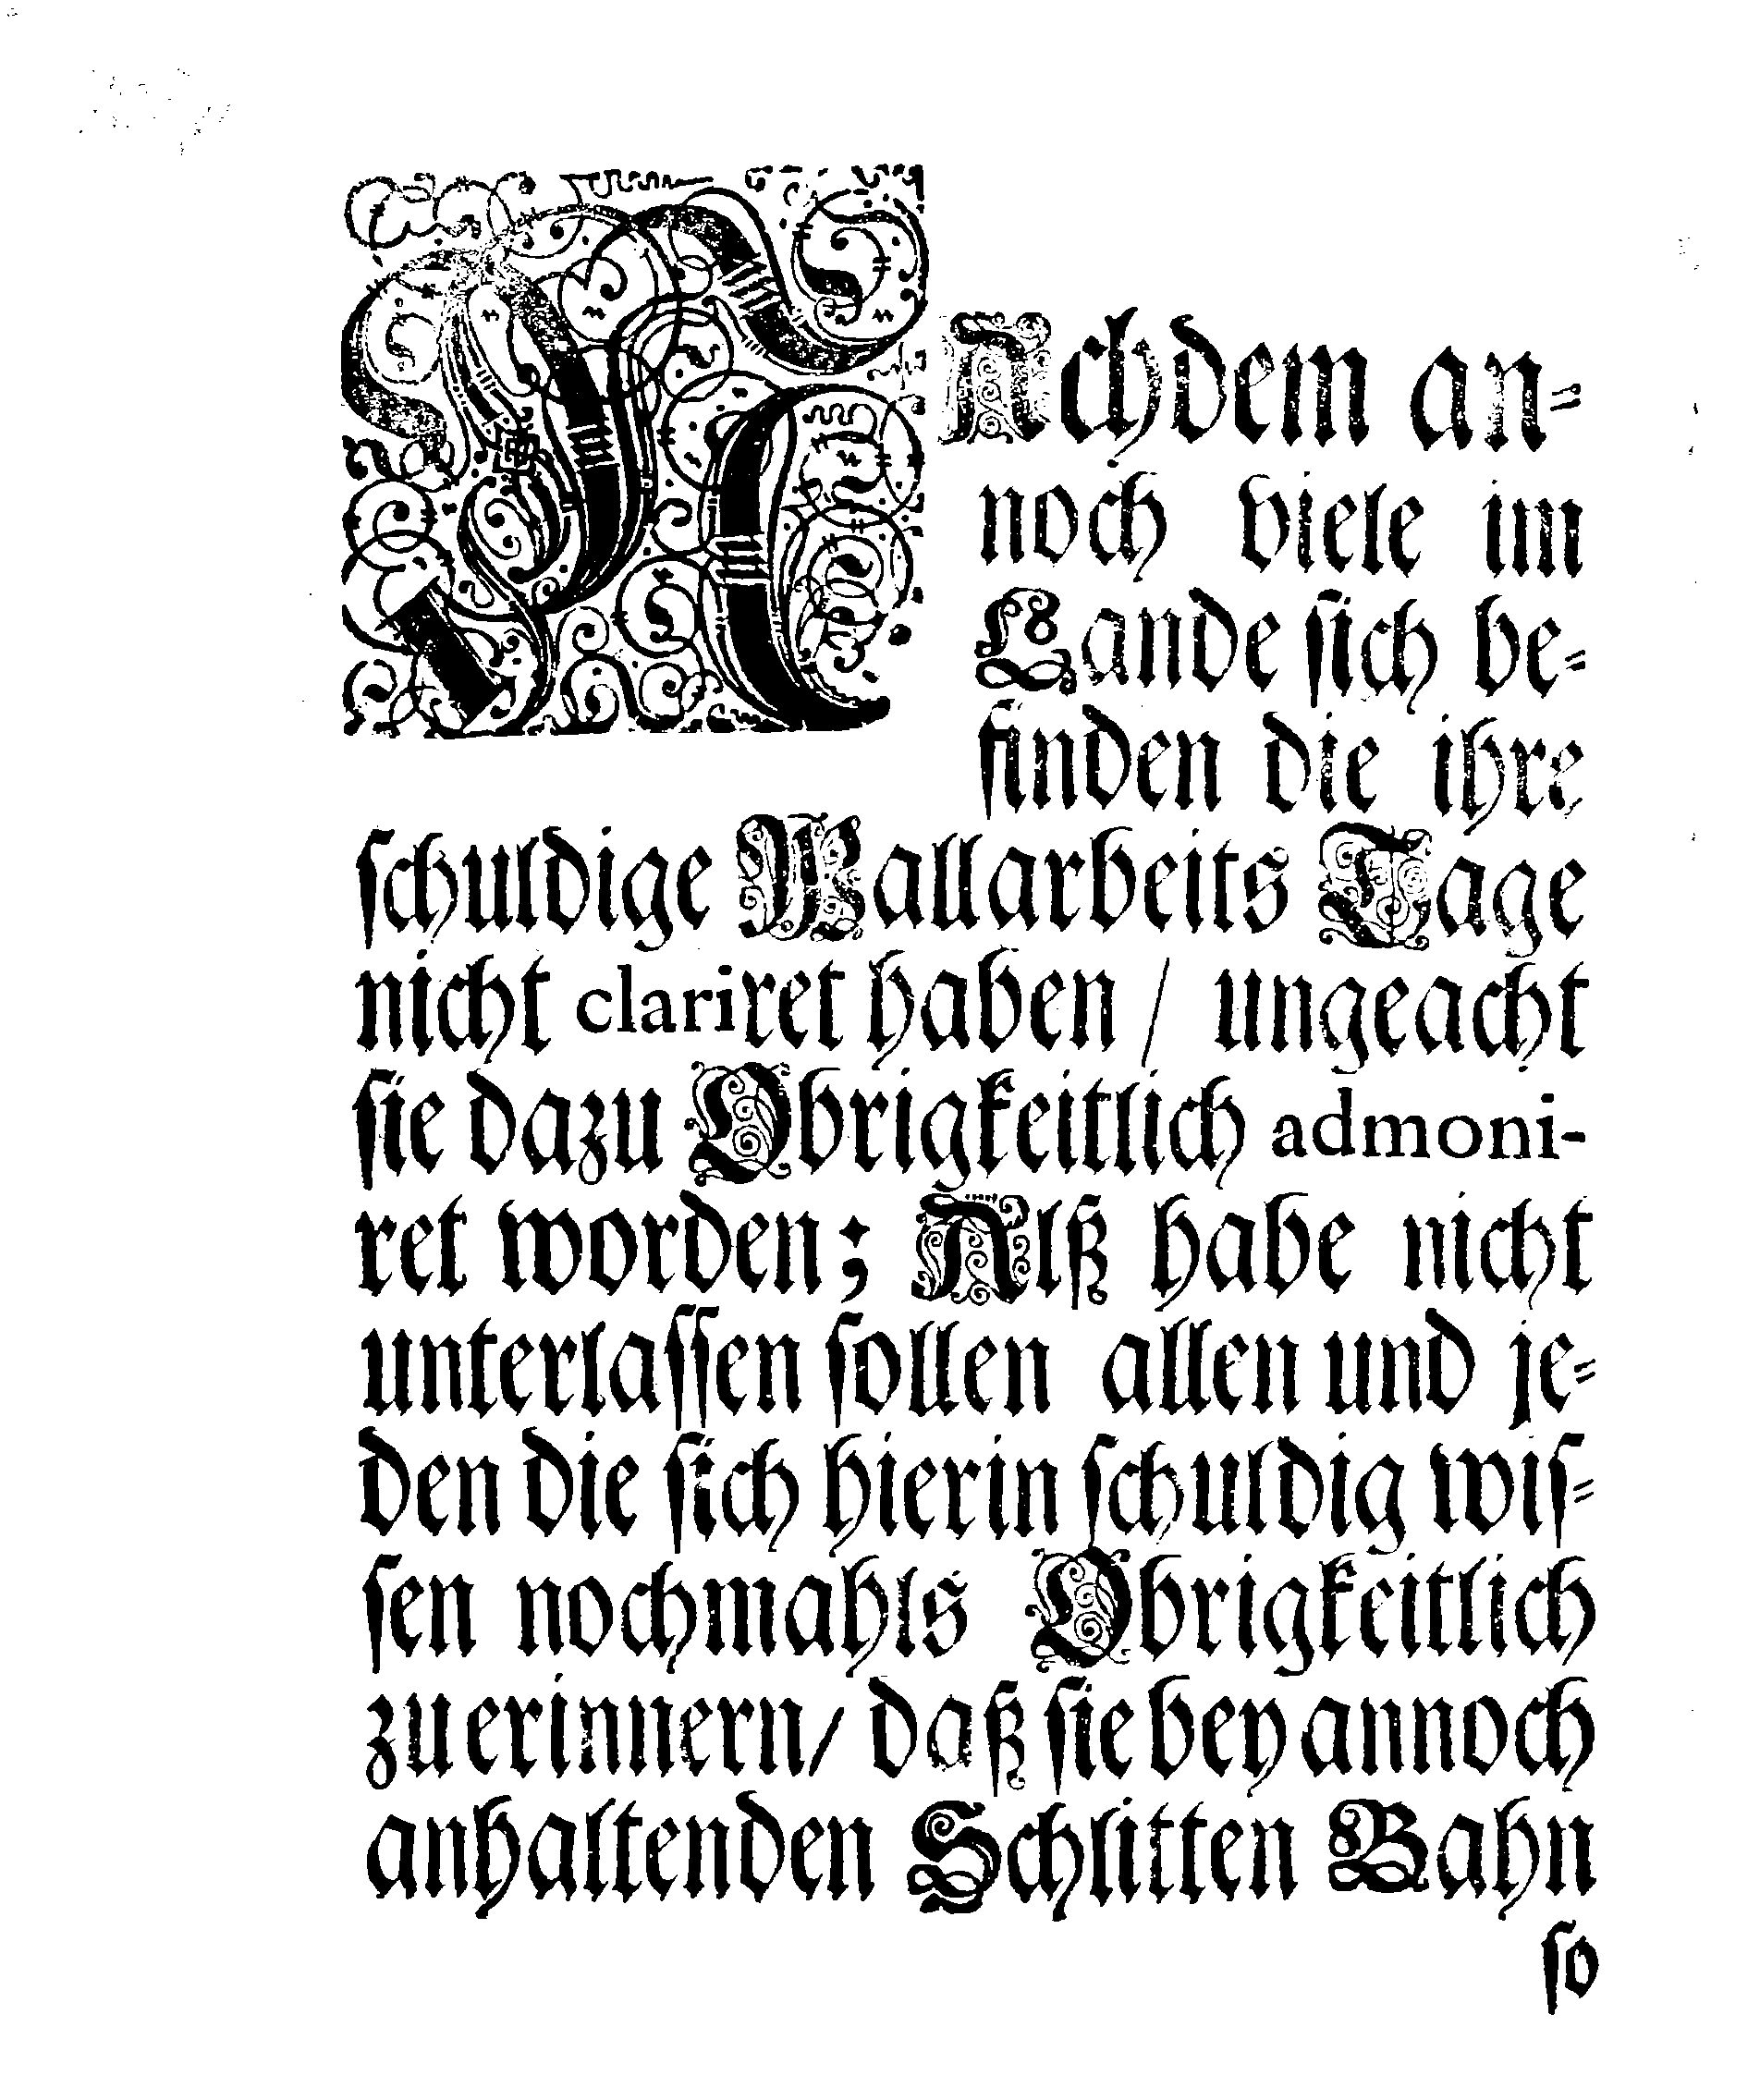 NAchdem an⸗
noch viele im
Lande ſich be⸗
finden die ihre
ſchuldige Wallarbeits Tage
nicht clariret haben / ungeacht
ſie dazu Obrigkeitlich admoni-
ret worden; Alß habe nicht
unterlaſſen ſollen allen und je⸗
den die ſich hierin ſchuldig wiſ⸗
ſen nochmahls Obrigkeitlich
zu erinnern/ daß ſie bey annoch
anhaltenden Schlitten Bahn
ſo